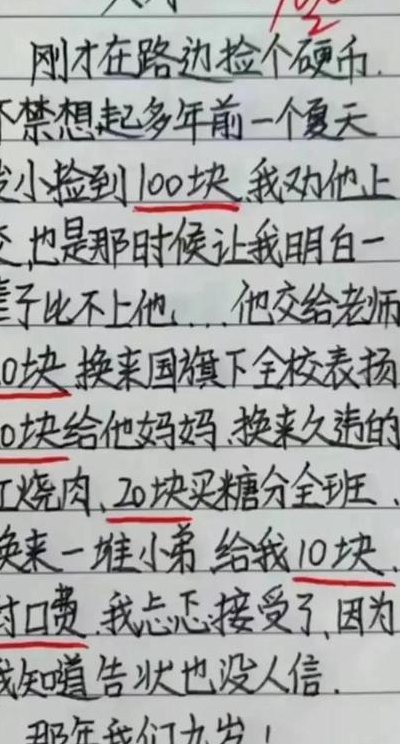 刚才在路边捡个硬币.
不禁想起多年前一个夏天
发小捡到100块,我劝他上
交,也是那时候让我明白一
辈子比不上他....他交给老师
0块,换来国旗下全校表扬
0块给他妈妈,换来久违的
红烧肉、20块买糖分全班、
换来一堆小弟,给我10块、
封口费.我忐忑接受了,因为
我知道告状也没人信.
那年我们九岁!